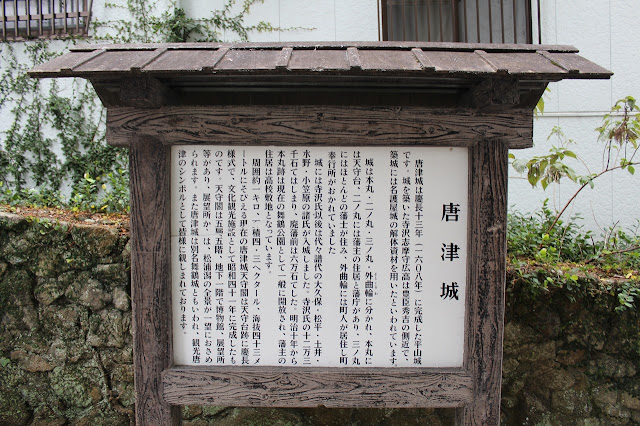 唐津城
唐津城は慶長十三年（一六〇八年）に完成した平山城
です。城を築いた寺沢志摩守広高は豊臣秀吉の側近で、
築城には名護屋城の解体資材を用いたといわれています。
城は本丸・二ノ丸・三ノ丸、外曲輪に分かれ、本丸に
は天守台、二ノ丸には藩主の住居と藩庁があり、三ノ丸
にはほとんどの藩士が住み、外曲輪には町人が居住し町
奉行所がおかれていました
城には寺沢氏以後は代々譜代の大久保・松平・土井・
水野・小笠原の諸氏が入城しました。寺沢氏の十二万三
千石ではじまり、廃藩前は六万石でした。明治十年から
本丸跡は現在の舞鶴公園として一般に開放され、藩主の
住居は高校敷地となっています。
周囲約一キロ、一積四・三ヘクタール、海抜四十三メ
ートルにそびえる現在の唐津城天守閣は天守台跡に慶長
様式で、文化観光施設として昭和四十一年に完成したも
のです。天守閣は五層五階、地下一階で博物館、展望所
等があり、展望所か、は、松浦潟の全景が一望におさめ
られます。また唐津城は別名舞鶴城ともいわれ、観光唐
津のシンボルとして皆様に親しまれております。